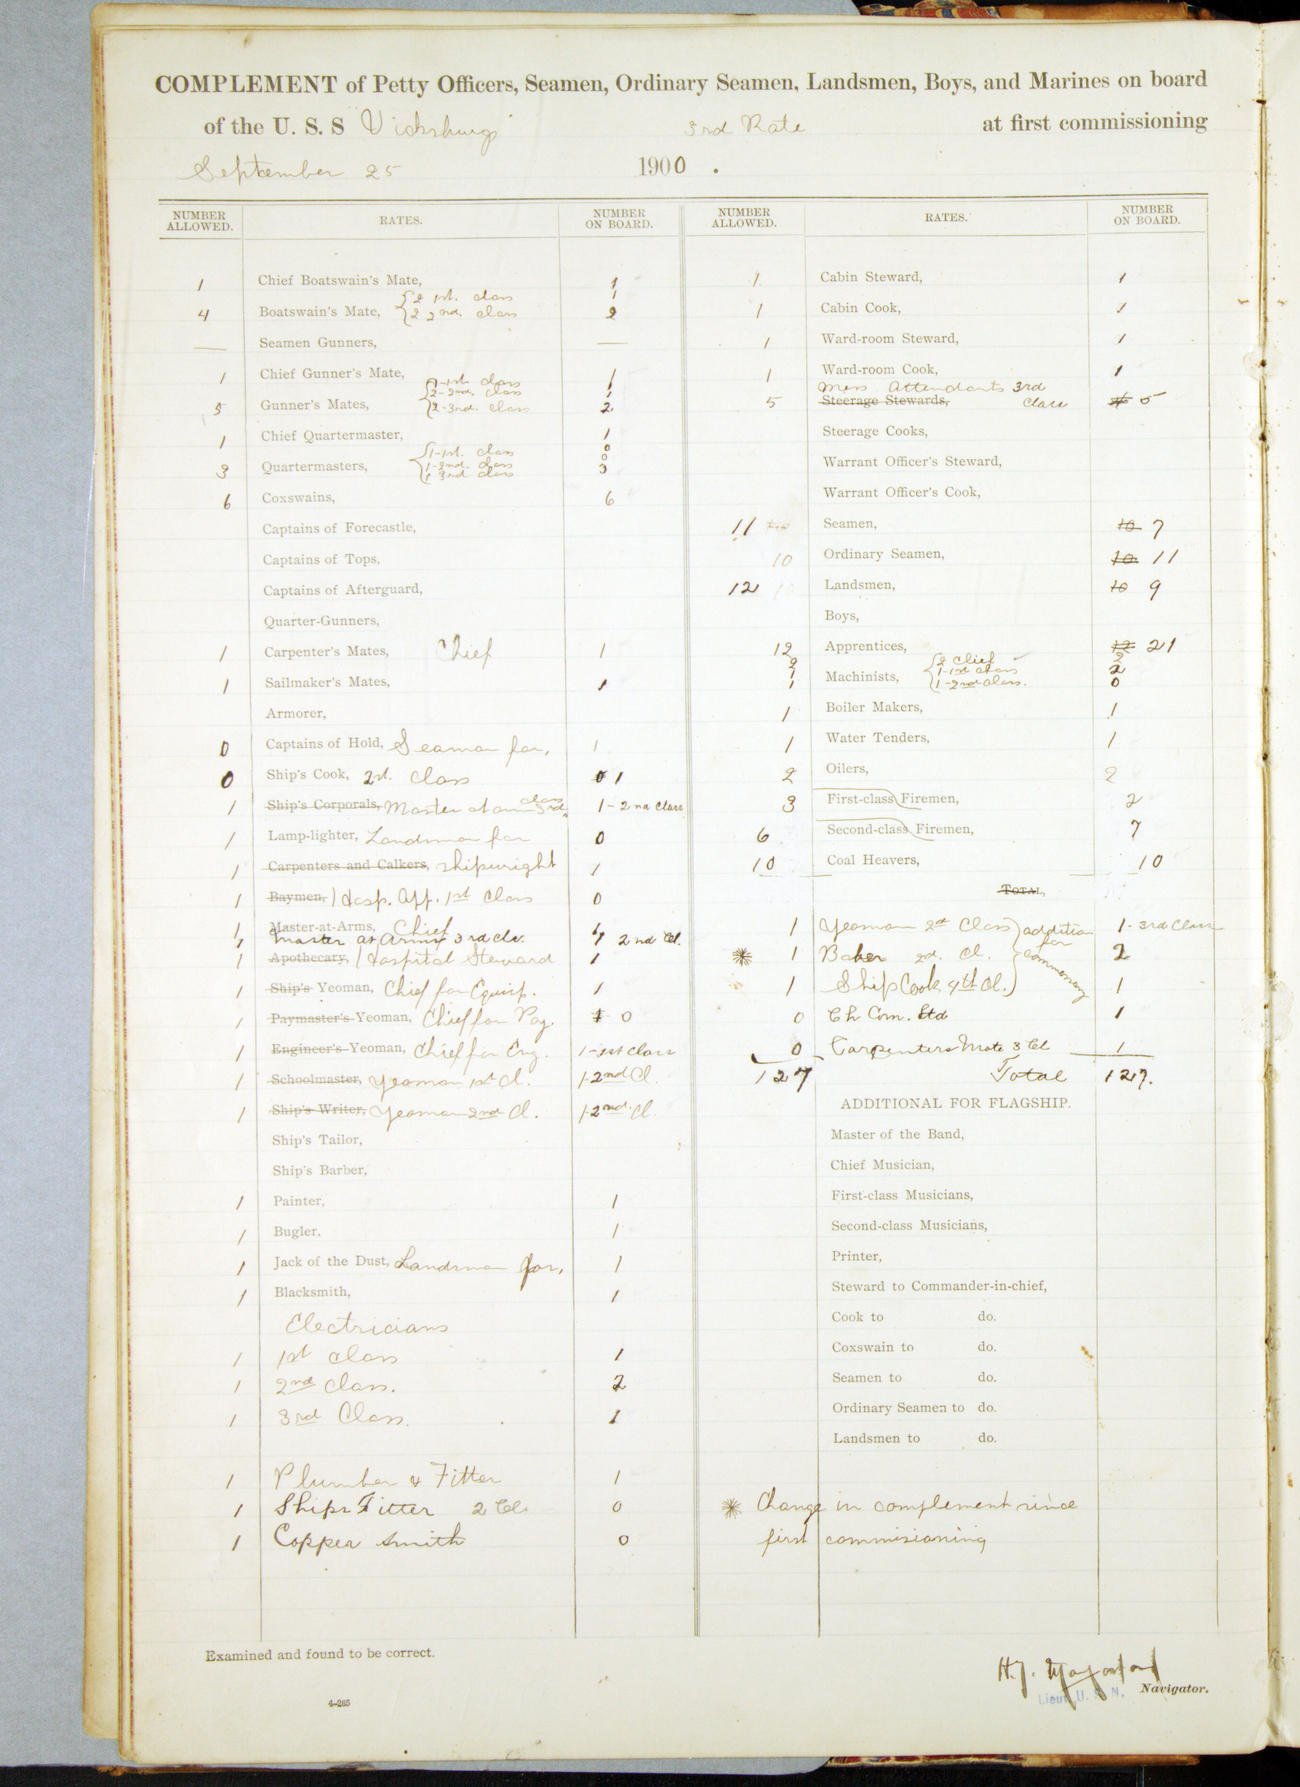 COMPLEMENT of Petty Officers, Seamen, Ordinary Seamen, Landsmen, Boys, and Marines on board
of the U. S. S Vicksburg 3rd Rate at first commissioning
September 25 1900 .
NUMBER ALLOWED. RATES. NUMBER ON BOARD.
1 Chief Boatswain's Mate, 1
4 Boatswain's Mate, { 2 1st. class 1
2 2nd. class 2
— Seamen Gunners, —
1 Chief Gunner's Mate, 1
5 Gunner's Mates, { 1-1st. class 1
2-2nd. class 1
2-3rd. class 2
1 Chief Quartermaster, 1
3 Quartermasters, { 1-1st. class 0
1-2nd. class 0
1 3rd class 3
6 Coxswains, 6
Captains of Forecastle,
Captains of Tops,
Captains of Afterguard,
Quarter-Gunners,
1 Carpenter's Mates, Chief 1
1 Sailmaker's Mates, 1
Armorer,
0 Captains of Hold, Seaman for, 1
0 Ship's Cook, 2st. Class 0 1
1 Ship's Corporals, Master at arms 3rd class 1-2nd Class
1 Lamp-lighter, Landsman for 0
1 Carpenters and Calkers, shipwright 1
1 Baymen, Hosp. App. 1st Class 0
1 Master-at-Arms, Chief
1 Master at Arms 3rd cls. 1 2nd Cl.
1 Apothecary, Hospital Steward 1
1 Ship's Yeoman, Chief for Equip. 1
1 Paymaster's Yeoman, Chief for Pay. 1 0
1 Engineer's Yeoman, Chief for Eng. 1-1st Class
1 Schoolmaster, Yeoman 1st Cl. 1-2nd Cl.
1 Ship's Writer, Yeoman 2nd Cl. 1-2nd Cl.
Ship's Tailor,
Ship's Barber,
1 Painter, 1
1 Bugler, 1
1 Jack of the Dust, Landsman for, 1
1 Blacksmith, 1
Electricians
1 1st class 1
1 2nd Class. 2
1 3rd Class. 1
1 Plumber & Fitter 1
1 Ships Fitter 2 Cl. 0
1 Copper smith 0
NUMBER ALLOWED. RATES. NUMBER ON BOARD.
1 Cabin Steward, 1
1 Cabin Cook, 1
1 Ward-room Steward, 1
1 Ward-room Cook, 1
Mess Attendants 3rd
5 Steerage Stewards, Class 5
Steerage Cooks,
Warrant Officer's Steward,
Warrant Officer's Cook,
11 Seamen, 10 7
10 Ordinary Seamen, 10 11
12 10 Landsmen, 10 9
Boys,
12 Apprentices, 12 21
2 Machinists, { 2 Chief 2
1 1-1st class 2
1 1-2nd Class. 0
1 Boiler Makers, 1
1 Water Tenders, 1
2 Oilers, 2
3 First-class Firemen, 2
6 Second-class Firemen, 7
10 Coal Heavers, 10
TOTAL,
1 Yeoman 2d Class } addition for commissary 1-3rd Class
* 1 Baker 2d. Cl. 2
1 Ship Cook 4th Cl. 1
0 Ch Com. Std 1
0 Carpenters Mate 3 Cl 1
127 Total 127.
ADDITIONAL FOR FLAGSHIP.
Master of the Band,
Chief Musician,
First-class Musicians,
Second-class Musicians,
Printer,
Steward to Commander-in-chief,
Cook to do.
Coxswain to do.
Seamen to do.
Ordinary Seamen to do.
Landsmen to do.
* Change in complement since
first commisioning
Examined and found to be correct.
Lieut. U. S. N. Navigator.
4-265